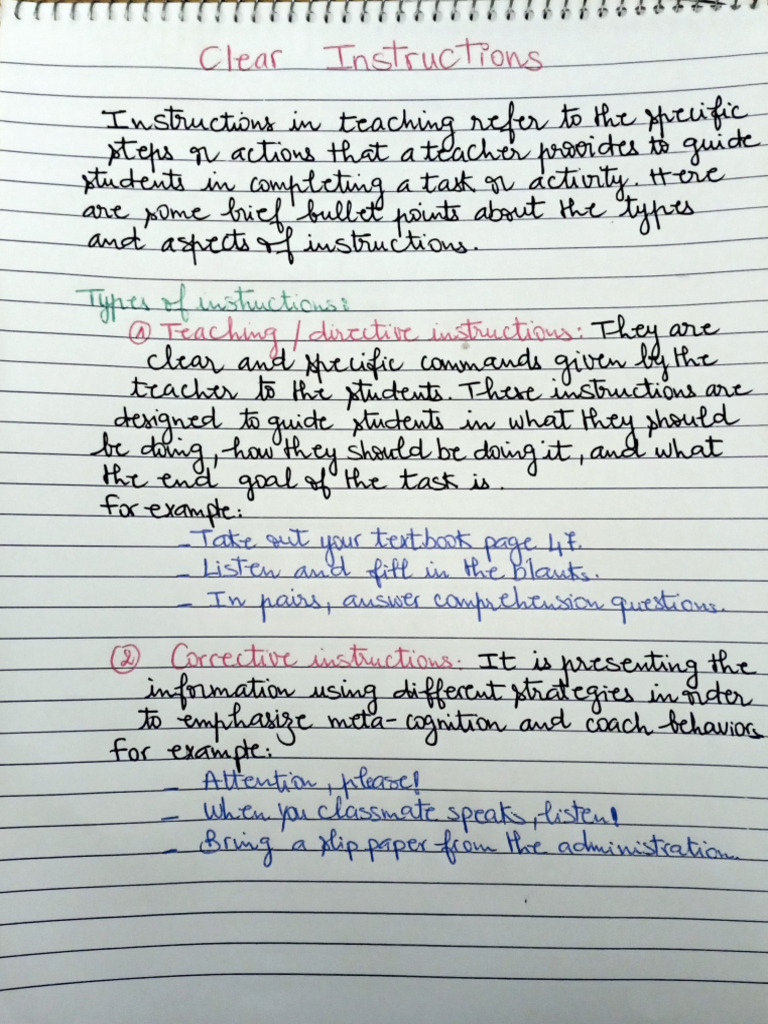 Clear Instructions
Instructions in teaching refer to the specific
steps or actions that a teacher provides to guide
students in completing a task or activity. Here
are some brief bullet points about the types
and aspects of instructions.
Types of instructions:
① Teaching / directive instructions: They are
clear and specific commands given by the
teacher to the students. These instructions are
designed to guide students in what they should
be doing, how they should be doing it, and what
the end goal of the task is.
For example:
- Take out your textbook page 47.
- Listen and fill in the blanks.
- In pairs, answer comprehension questions.
② Corrective instructions: It is presenting the
information using different strategies in order
to emphasize meta-cognition and coach behaviors
For example:
- Attention, please!
- When you classmate speaks, listen!
- Bring a slip paper from the administration.